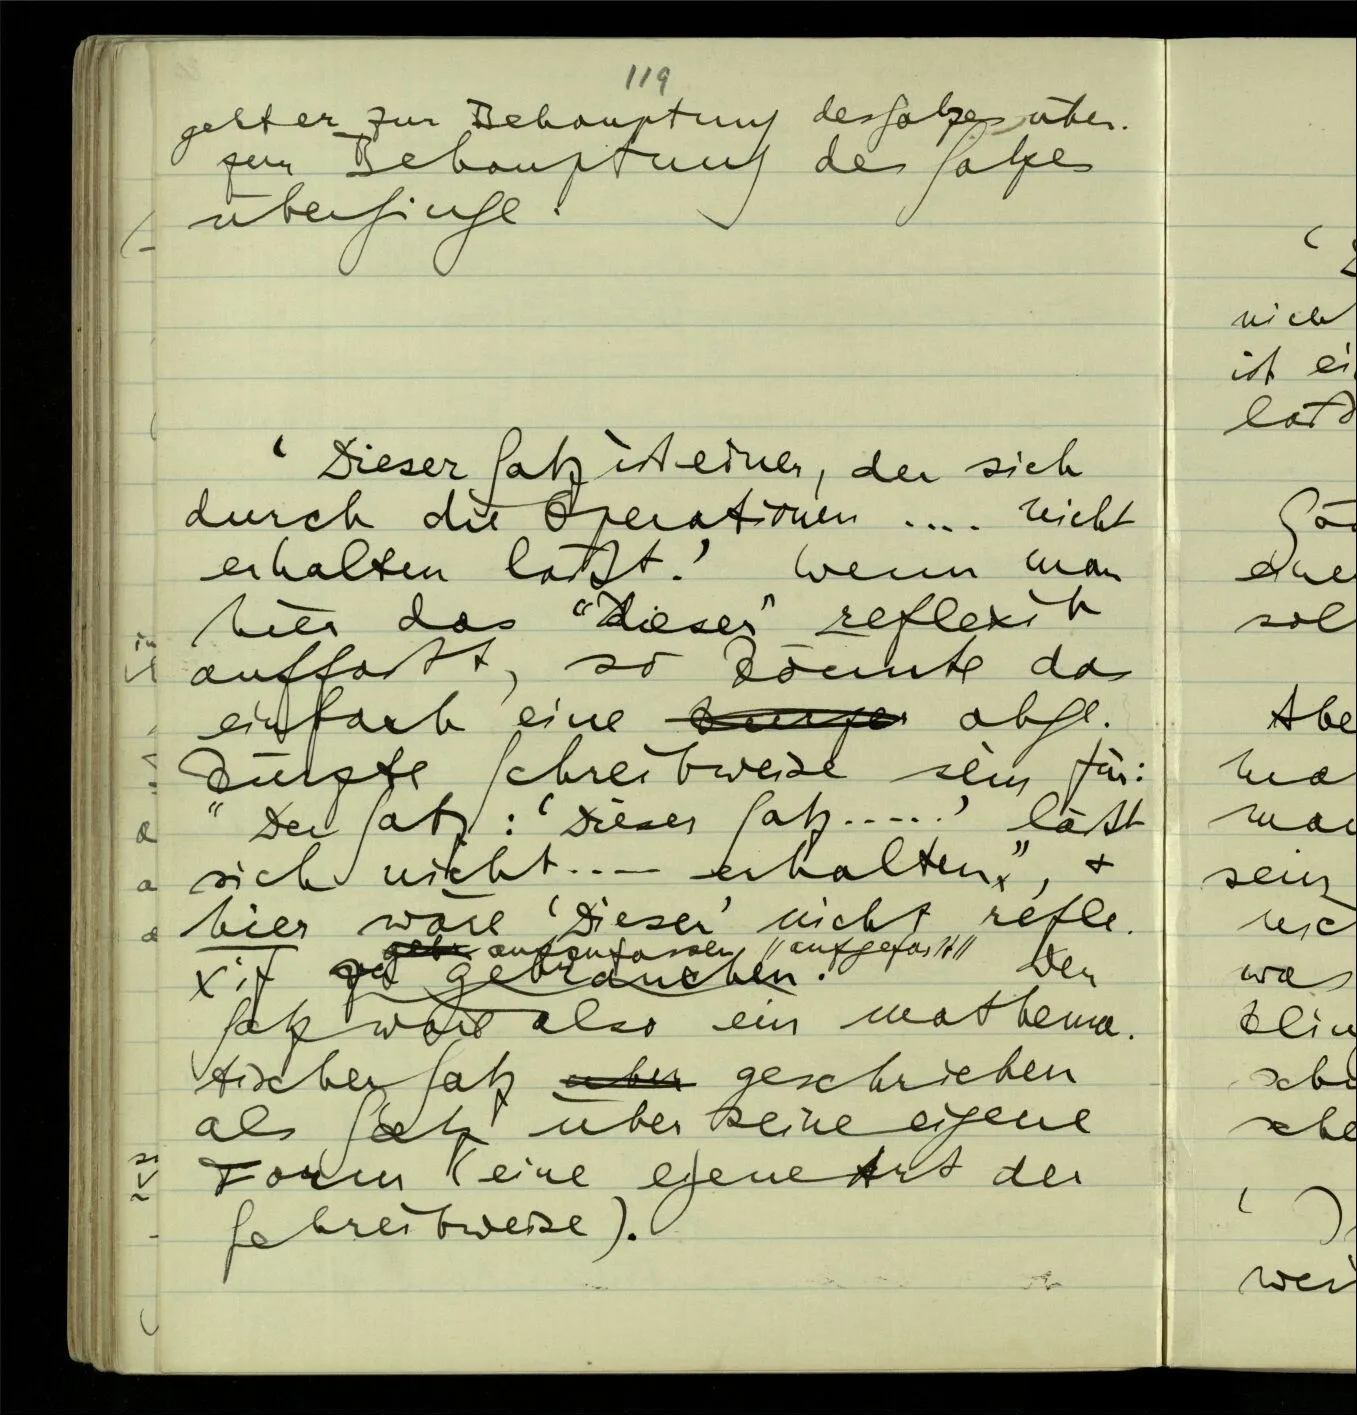 119
geht er zur Behauptung des Satzes über.
zur Behauptung des Satzes
überginge.
‘Dieser Satz ist einer, der sich
durch die Operationen .... nicht
erhalten läßt.’ Wenn man
hier das “Dieser” reflexiv
auffaßt, so könnte das
einfach eine abge-
kürzte Schreibweise sein für:
“Der Satz: ‘Dieser Satz.....’ läßt
sich nicht.... erhalten”, &
hier wäre ‘Dieser’ nicht refle-
aufzufassen //aufgefaßt//
xiv gebrauchen. Der
Satz wäre also ein mathema-
tischer Satz aber geschrieben
als Satz über seine eigene
Form (eine eigene Art der
Schreibweise).
nich
ist ei
eine
sol
Abe
ma
man
sein
nic
was